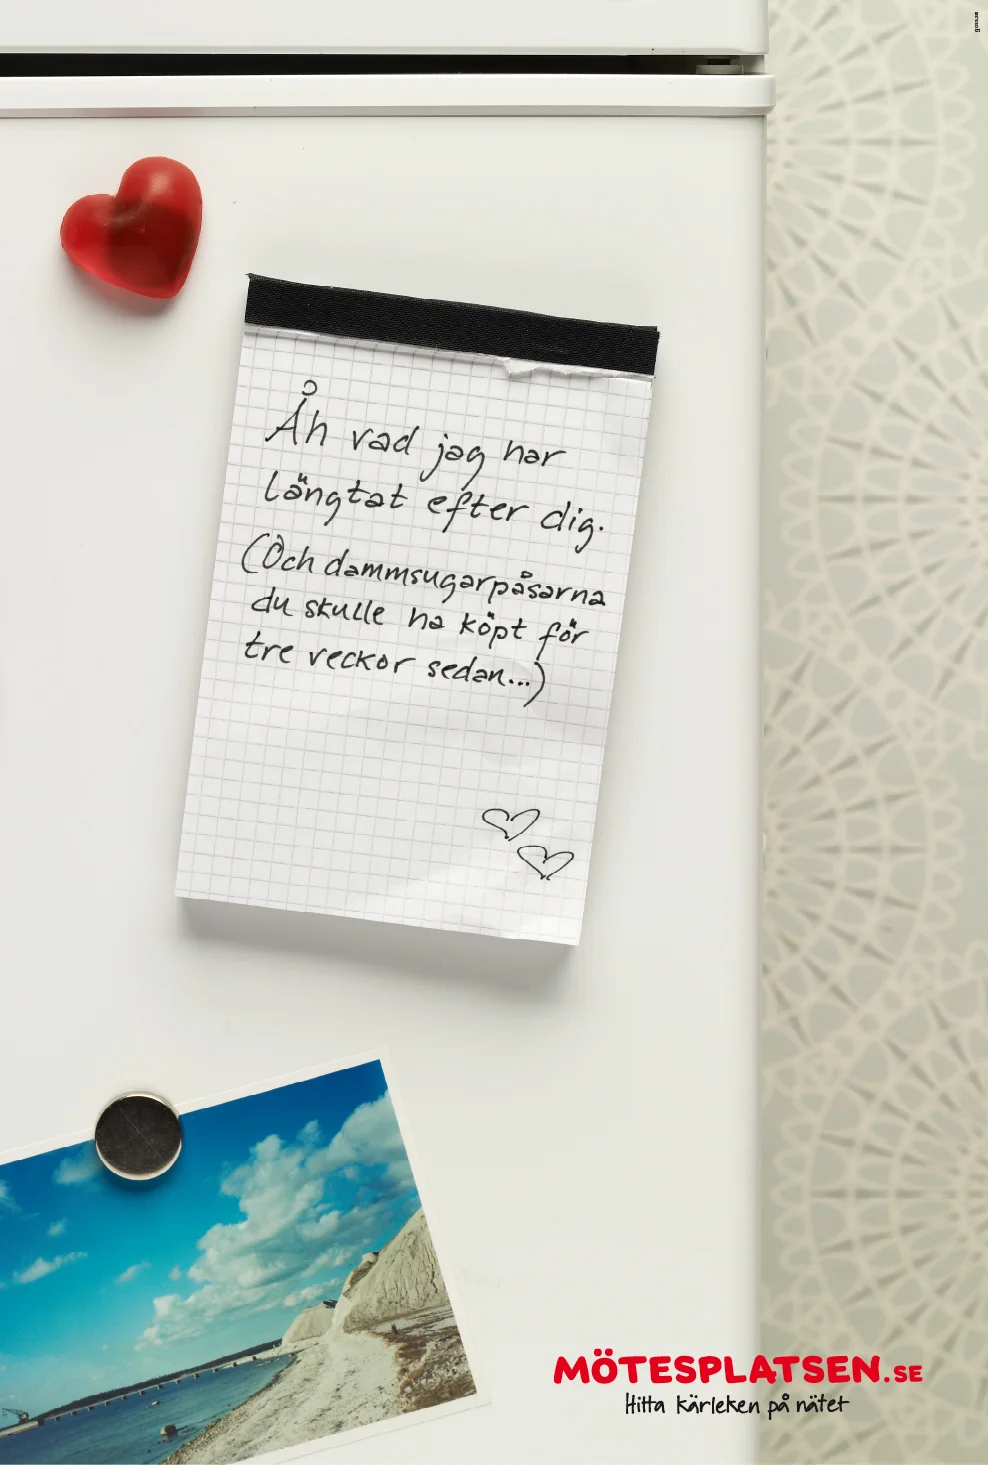 Åh vad jag har
längtat efter dig.
(Och dammsugarpåsarna
du skulle ha köpt för
tre veckor sedan...)
MÖTESPLATSEN.SE
Hitta kärleken på nätet